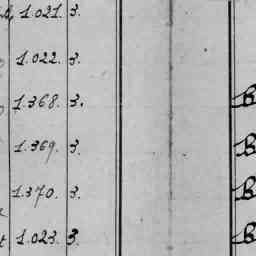 1.021. 3.
1.022. 3.
1.368. 3. B
1.369. 3. B
1.370. 3. B
1.023. 3. B